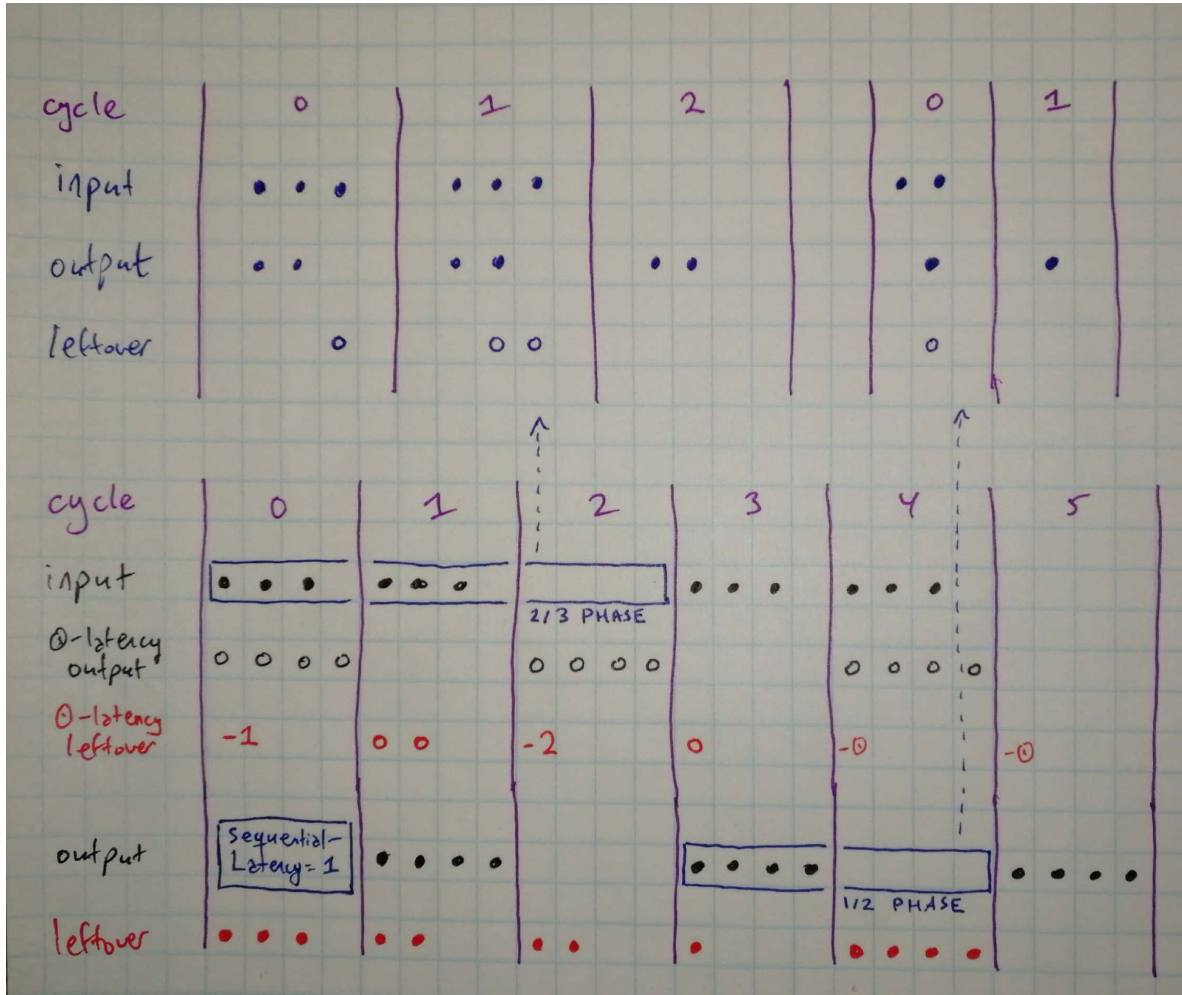 cycle 0 1 2 0 1
input
output
leftover
cycle 0 1 2 3 4 5
input
2/3 PHASE
0-latency
output
0-latency
leftover -1 -2 -0 -0
output Sequential-
Latency=1
1/2 PHASE
leftover